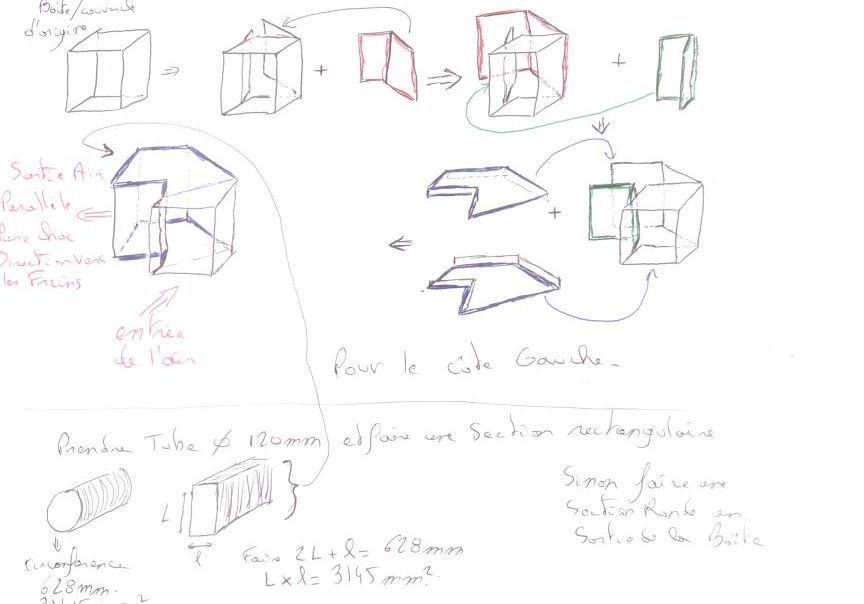 Boite/
d'origine
Sortie Air
Parallèle
Pare choc
Direction vers
les Freins
entrée
de l'air
Pour le côté Gauche.
Prendre Tube ϕ 120mm et faire une Section rectangulaire
Sinon faire une
Section Ronde en
Sortie de la Boite
L
l
Faire 2L + l = 628mm
L x l = 3145 mm².
circonférence
628mm.